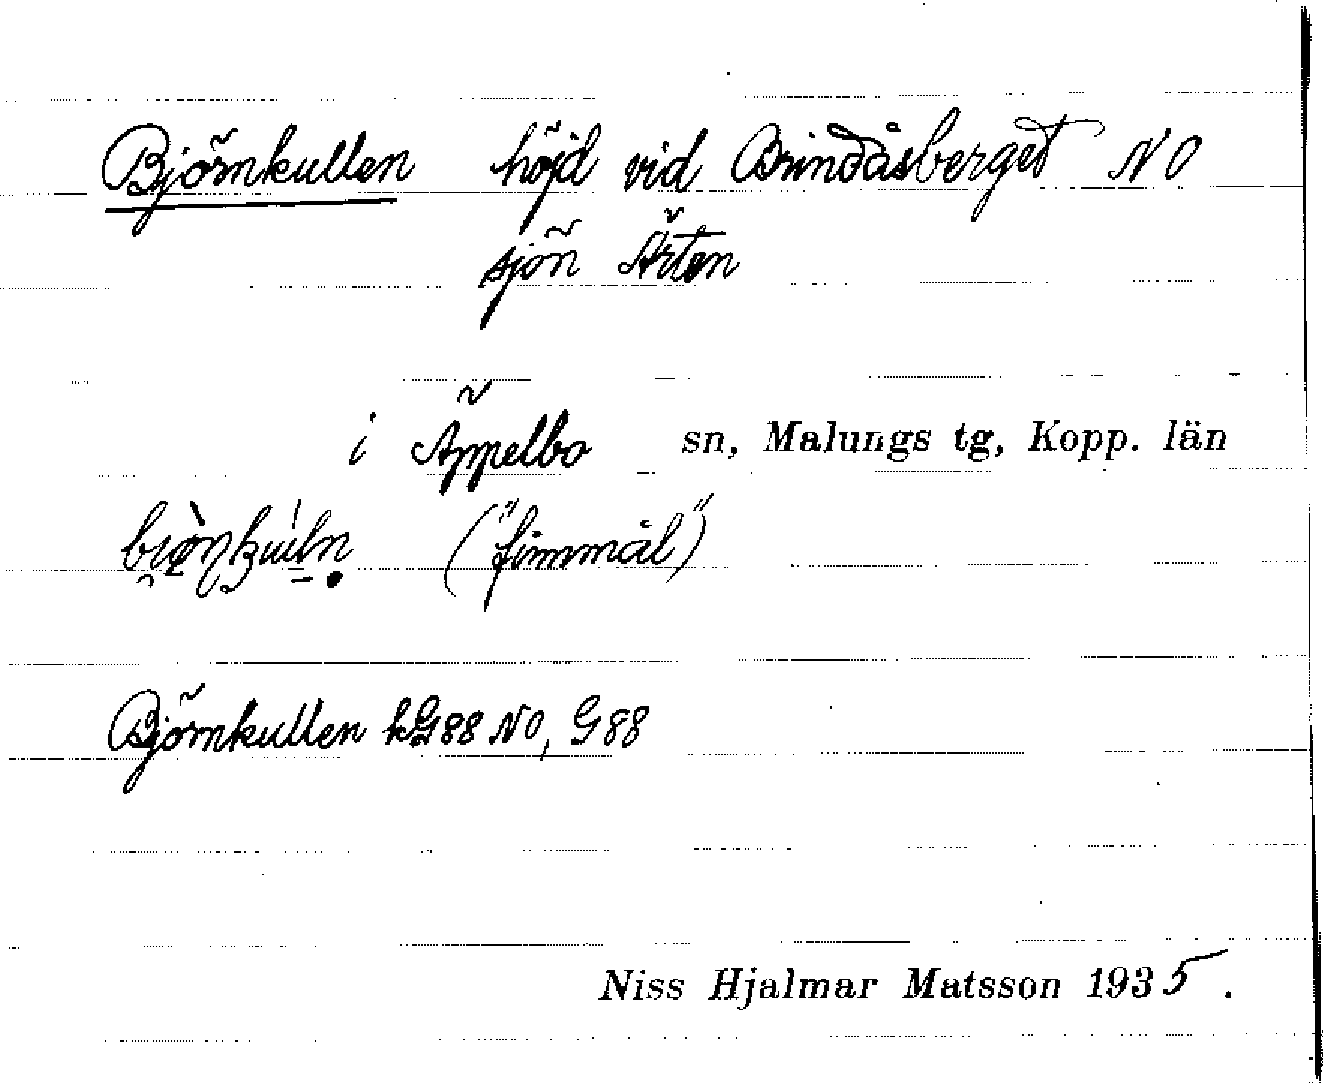 Björnkullen höjd vid Brindåsberget NO
sjön Ärten
i Äppelbo sn, Malungs tg, Kopp. län
("finnmål")
Björnkullen kG88 NO, G88
Niss Hjalmar Matsson 1935.